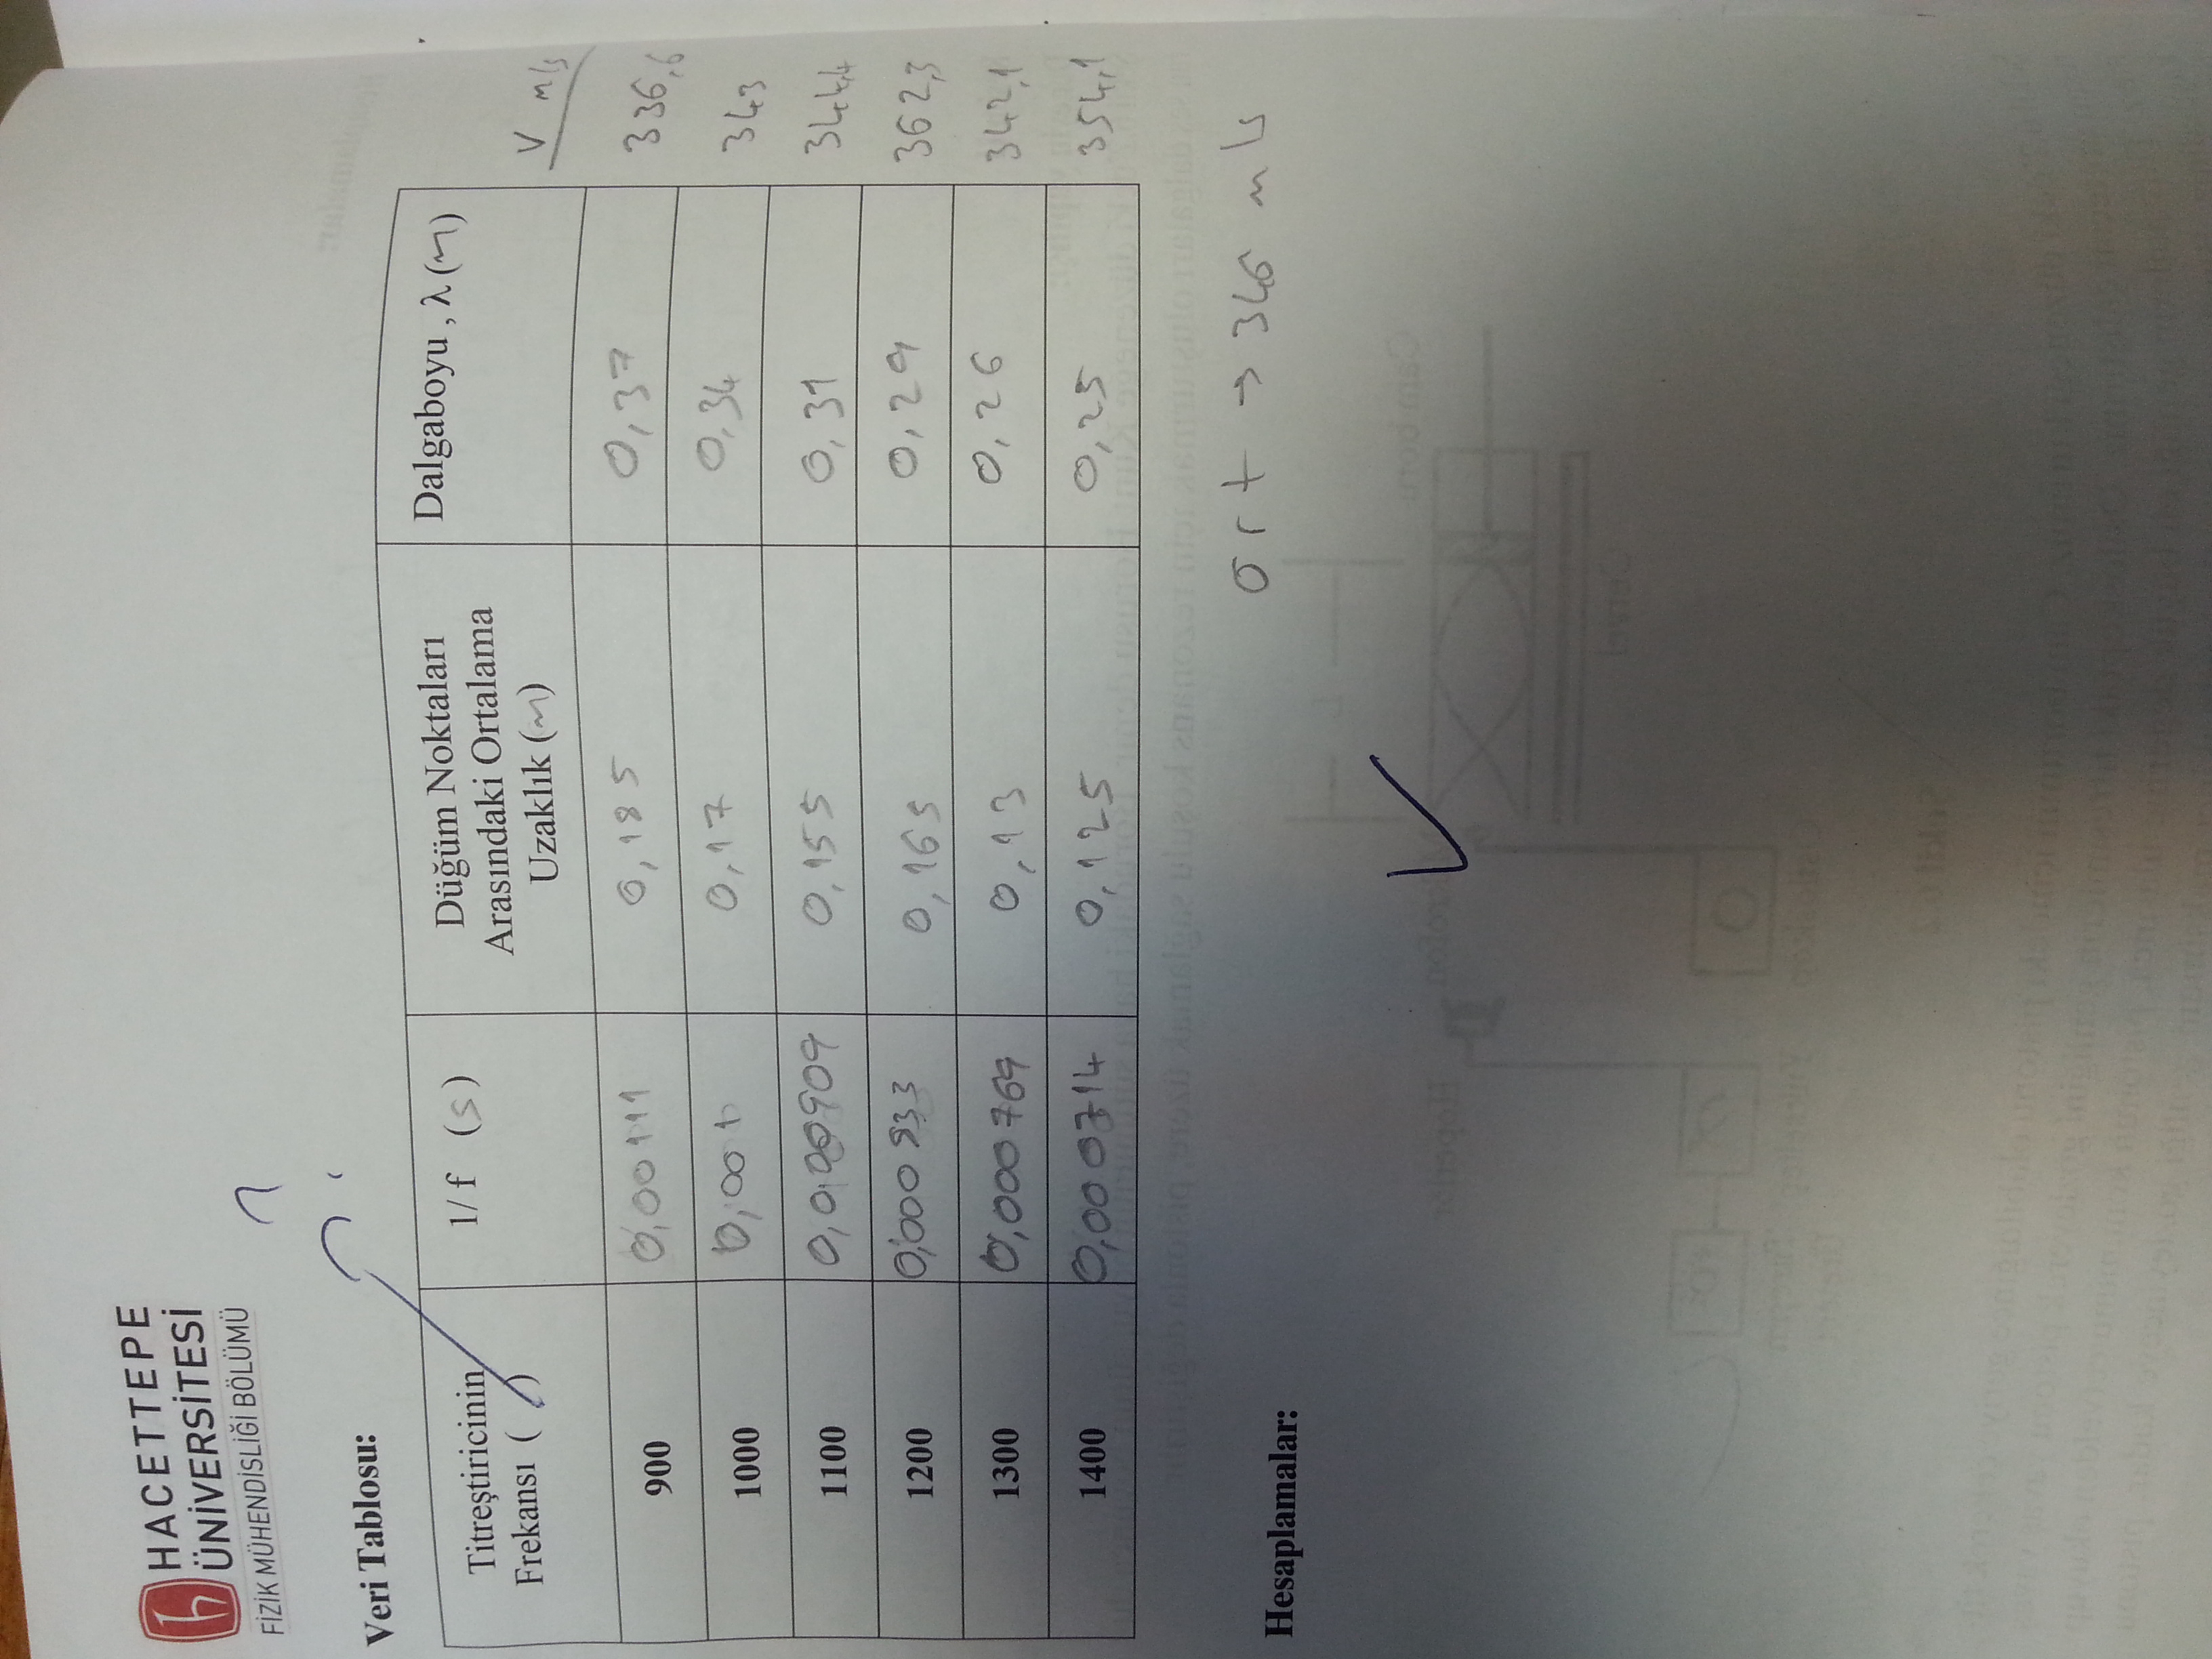 HACETTEPE
ÜNİVERSİTESİ
FİZİK MÜHENDİSLİĞİ BÖLÜMÜ
?
Veri Tablosu:
Titreştiricinin Frekansı ( )
1/ f (s)
Düğüm Noktaları Arasındaki Ortalama Uzaklık (m)
Dalgaboyu , λ (m)
V m/s
900 0,00111 0,185 0,37 336,6
1000 0,001 0,17 0,34 343
1100 0,000909 0,155 0,31 344,4
1200 0,000833 0,165 0,29 362,3
1300 0,000769 0,13 0,26 342,1
1400 0,000714 0,125 0,25 354,1
ort → 346 m/s
Hesaplamalar: